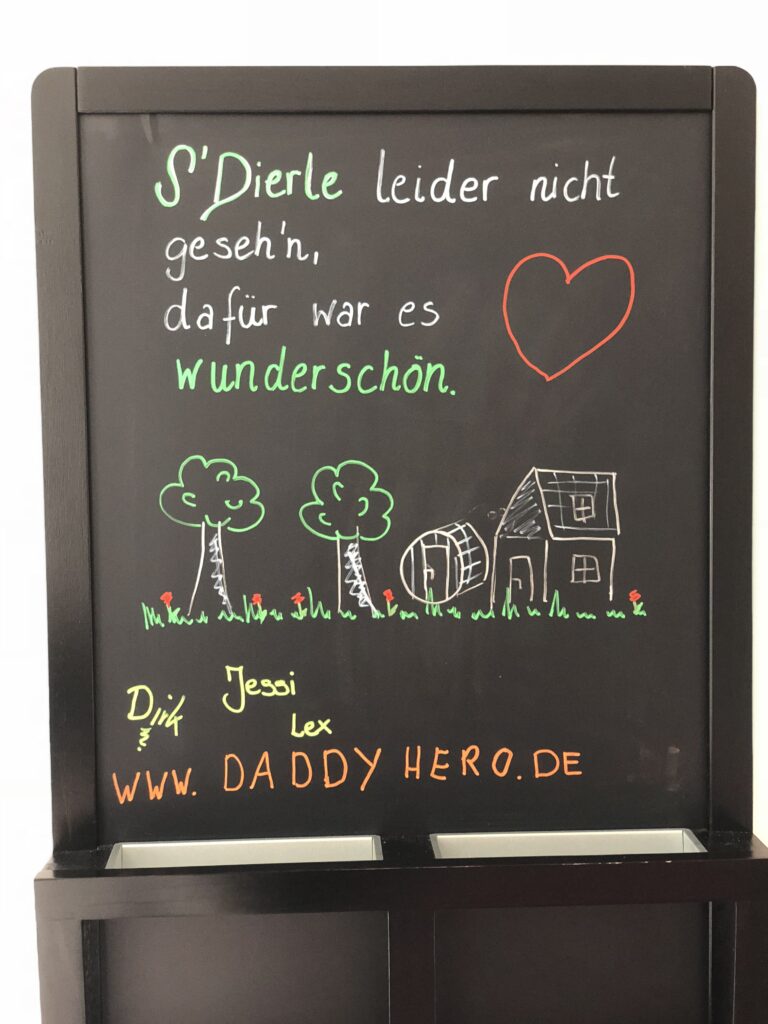 S'Dierle leider nicht
geseh'n,
dafür war es
wunderschön.
Dirk Jessi
Lex
WWW.DADDYHERO.DE